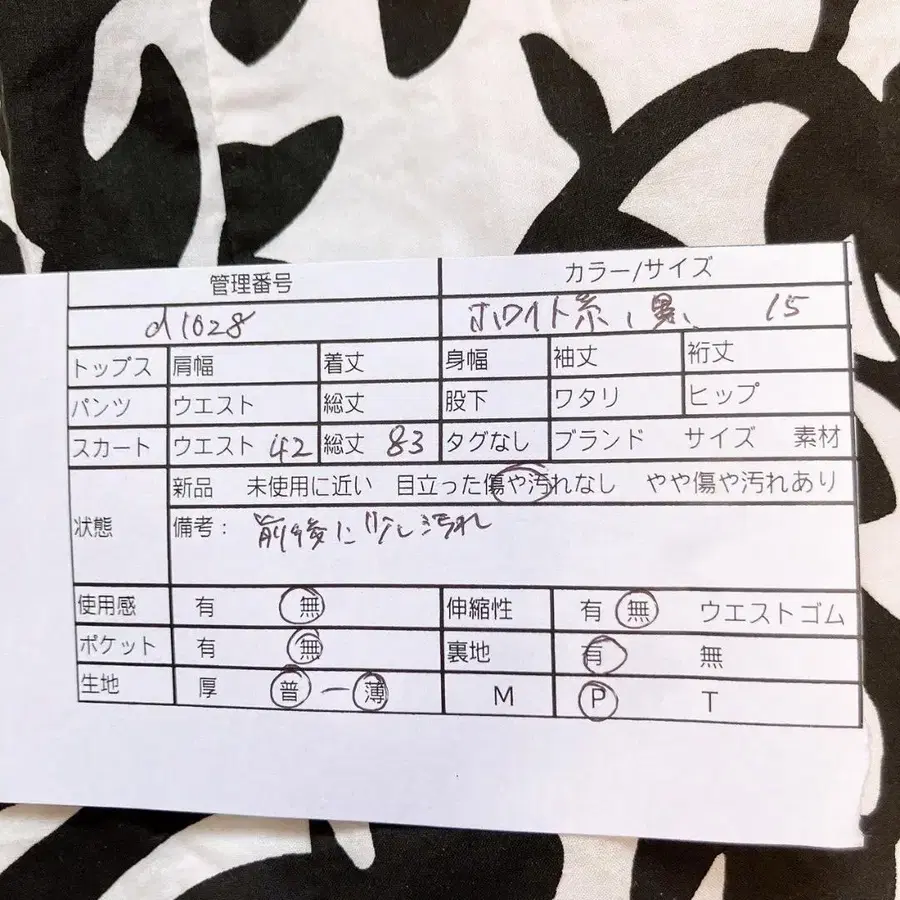 管理番号 カラー/サイズ
d1028 ホワイト系、黒、 15
トップス 肩幅 着丈 身幅 袖丈 裄丈
パンツ ウエスト 総丈 股下 ワタリ ヒップ
スカート ウエスト 42 総丈 83 タグなし ブランド サイズ 素材
状態 新品 未使用に近い 目立った傷や汚れなし やや傷や汚れあり
備考: 前後に少し汚れ
使用感 有 無 伸縮性 有 無 ウエストゴム
ポケット 有 無 裏地 有 無
生地 厚 普 ー 薄 M P T